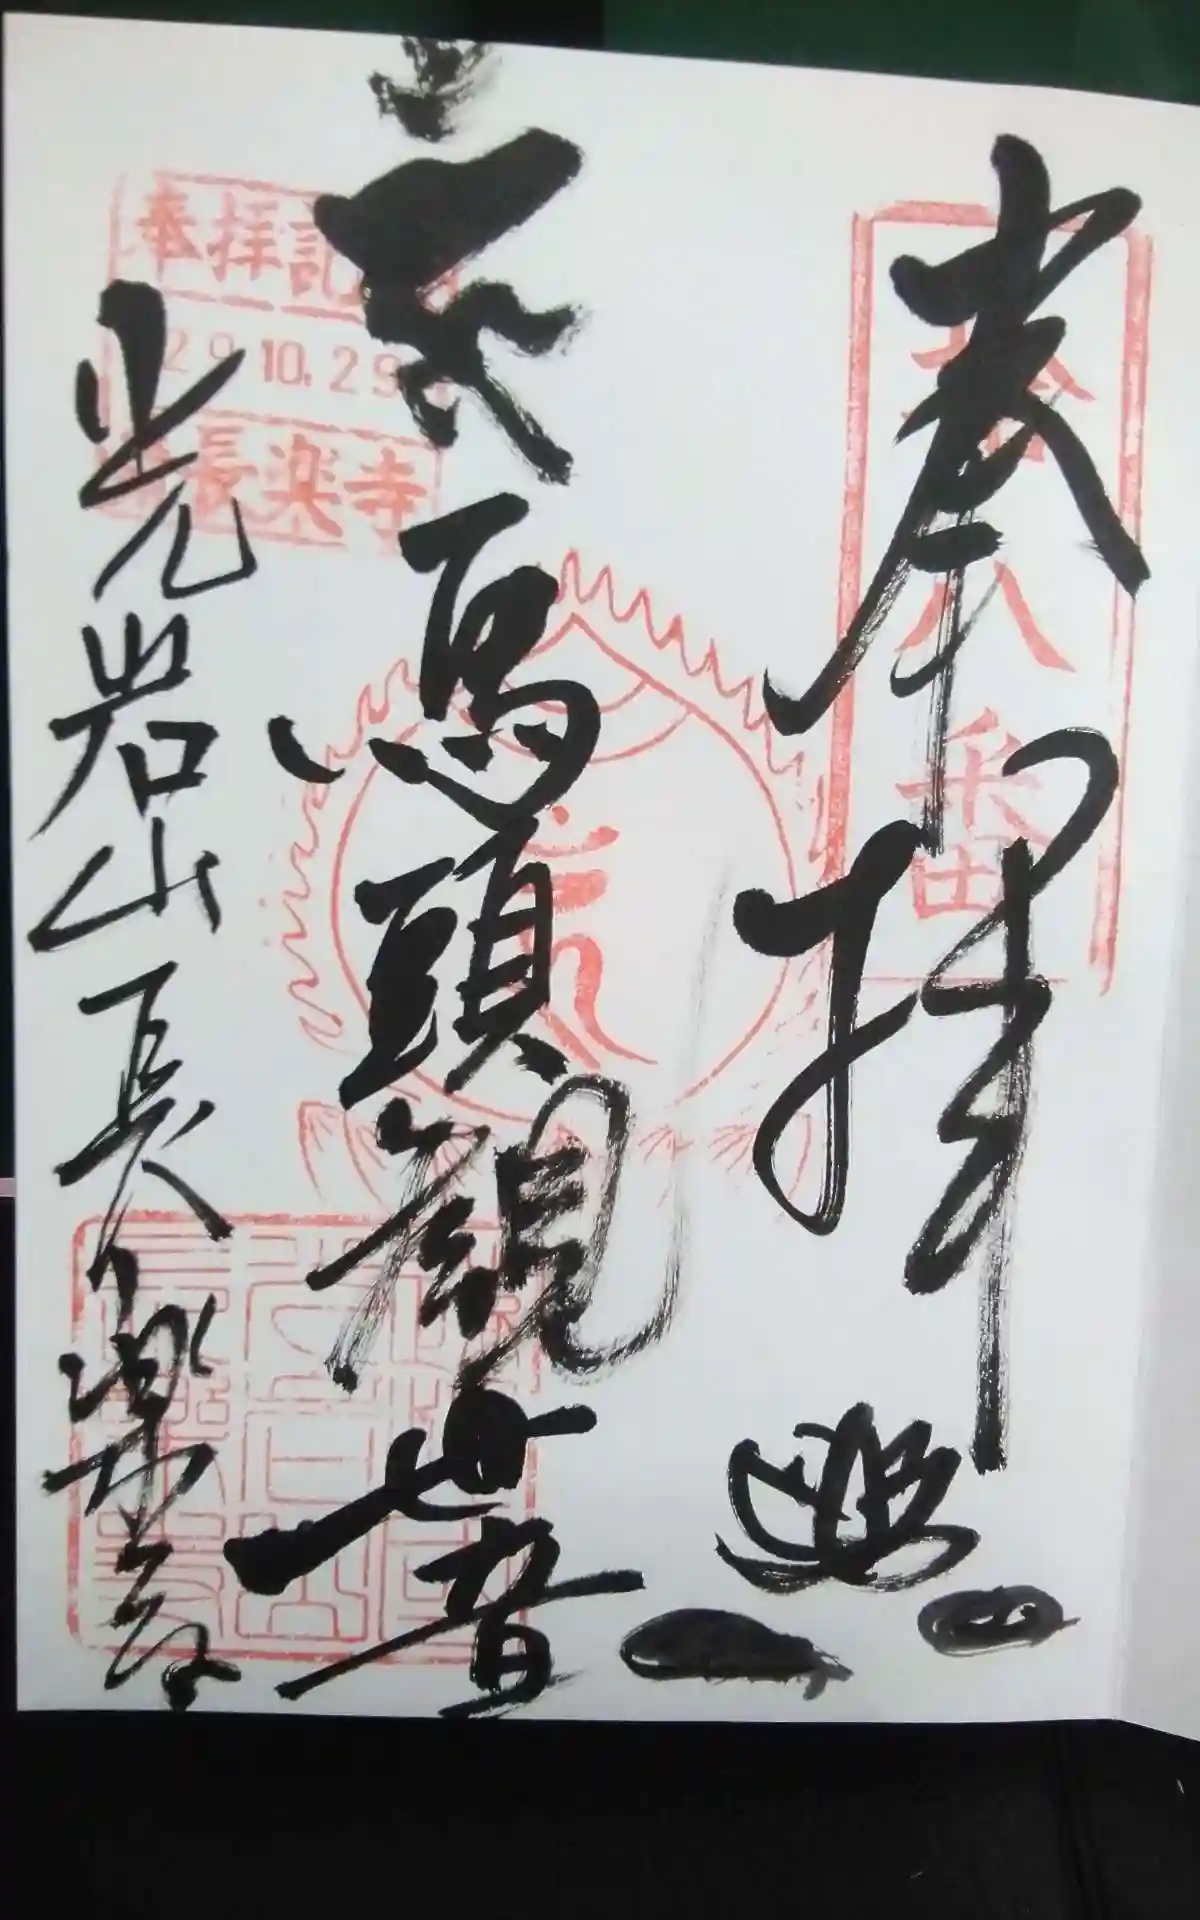 奉拝
拾八番
馬頭観世音
奉拝記
29.10.29
長楽寺
光岩山長楽寺